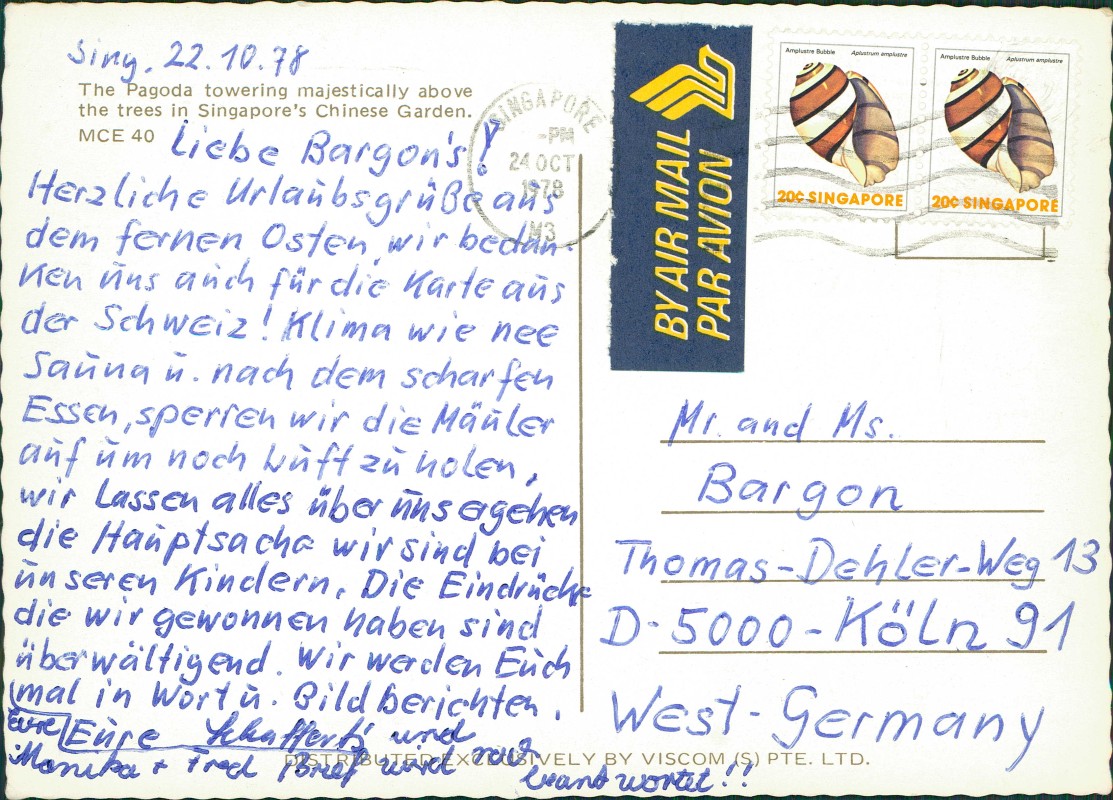 Sing. 22.10.78
The Pagoda towering majestically above
the trees in Singapore's Chinese Garden.
MCE 40
Liebe Bargon's!
Herzliche Urlaubsgrüße aus
dem fernen Osten, wir bedan-
ken uns auch für die Karte aus
der Schweiz! Klima wie nee
Sauna u. nach dem scharfen
Essen, sperren wir die Mäuler
auf um noch Luft zu holen,
wir lassen alles über uns ergehen
die Hauptsache wir sind bei
unseren Kindern. Die Eindrücke
die wir gewonnen haben sind
überwältigend. Wir werden Euch
mal in Wort u. Bild berichten.
Eure
Eure und
Monika + Fred Brief wird noch
beantwortet!!
SINGAPORE
-PM
24 OCT
1978
M3
BY AIR MAIL
PAR AVION
Amplustre Bubble Aplustrum amplustre
20¢ SINGAPORE
Amplustre Bubble Aplustrum amplustre
20¢ SINGAPORE
Mr. and Ms.
Bargon
Thomas-Dehler-Weg 13
D-5000-Köln 91
West-Germany
DISTRIBUTED EXCLUSIVELY BY VISCOM (S) PTE. LTD.